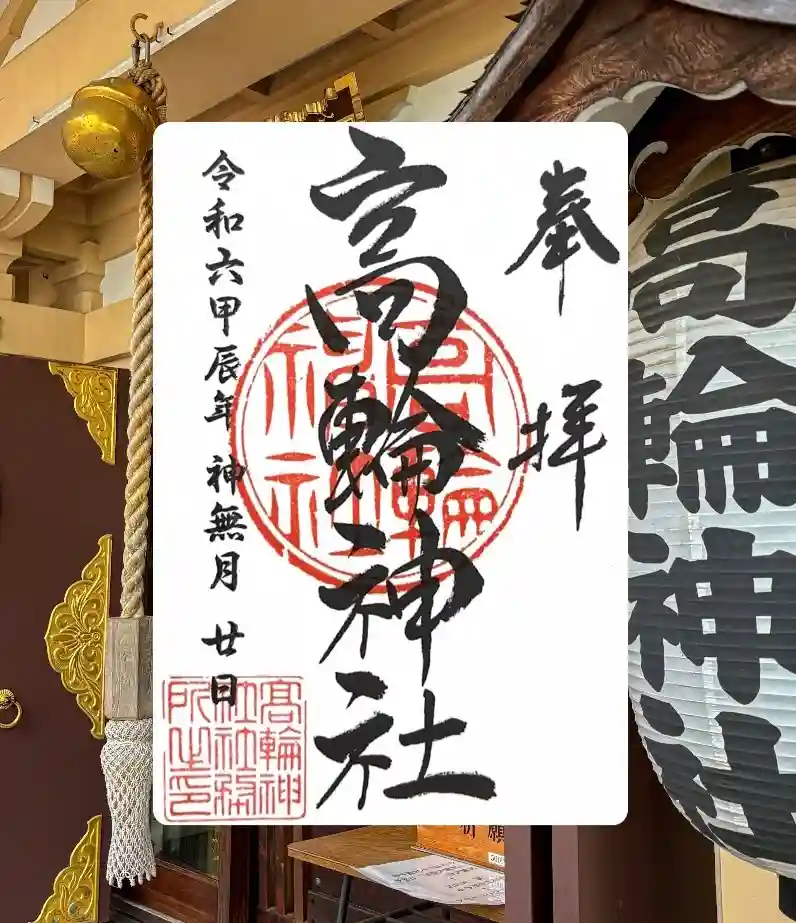 奉拝
高輪神社
令和六甲辰年 神無月 廿日
高輪神社
高輪神社社務所之印
高輪神社
祈願